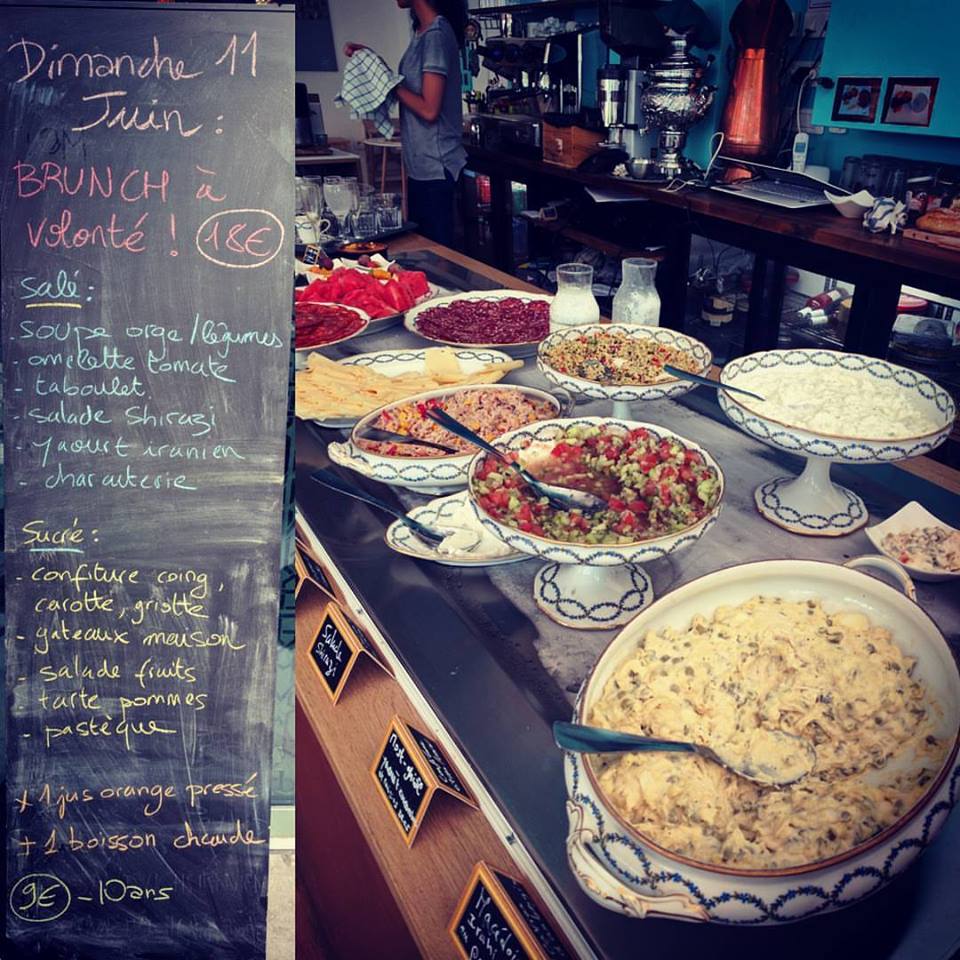 Dimanche 11
Juin :
BRUNCH à
volonté ! 18€
salé :
. soupe orge/légumes
- omelette tomate
- taboulet
- salade Shirazi
- yaourt iranien
- charcuterie
Sucré :
- confiture coing,
carotte, griotte
- gâteaux maison
- salade fruits
- tarte pommes
- pastèque
+ 1 jus orange pressé
+ 1 boisson chaude
9€ - 10ans
Salade
Shirazi